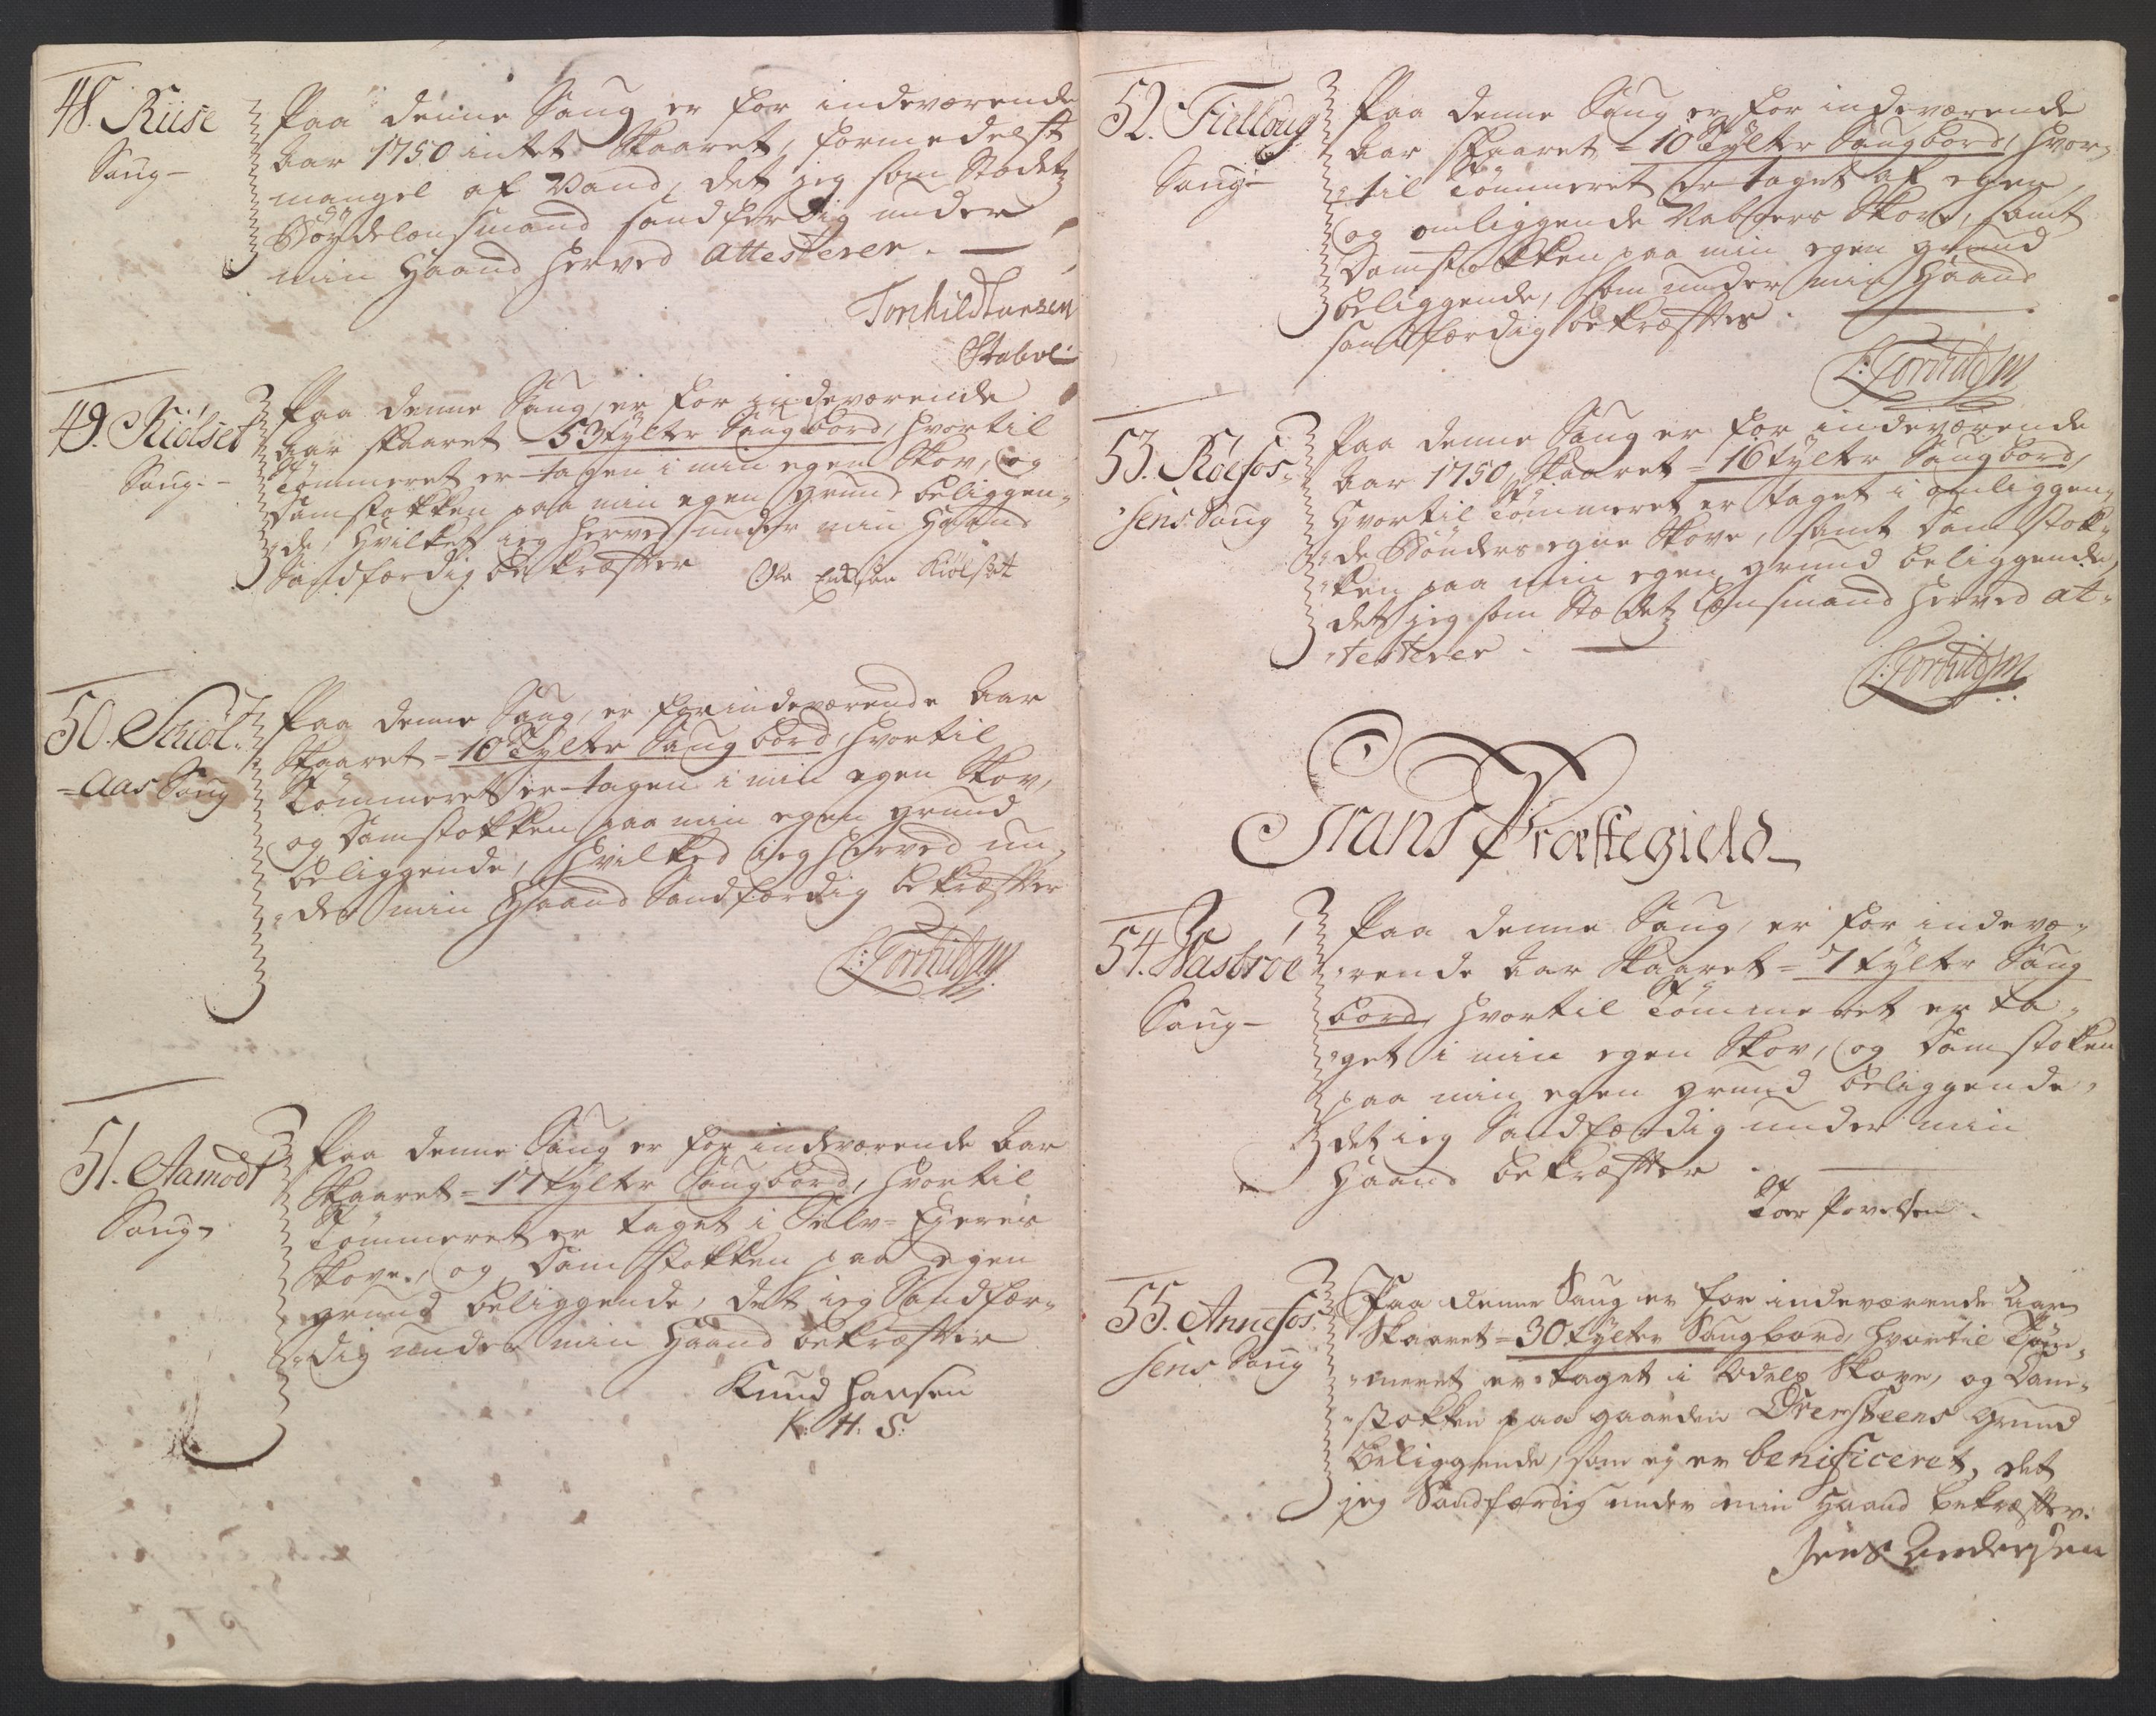 48. Riise
Saug-
Paa denne Saug er for indeværende
Aar 1750 intet Skaaret, formedelst
mangel af Vand, det jeg som Stædetz
Bøÿdelensmand sandferdig under
min Haand herved Attesterer.
Torchild Hansen
Stabel
49. Kiølset
Saug.-
Paa denne Saug, er for indeværende
Aar skaaret - 53 tÿlter Saugbord, hvortil
Tømmeret er tagen i min egen Skov, og
Damstokken paa min egen grund beliggen-
de, hvilket jeg herved under min Haand
Sandfærdig bekræfter
Kiølset
50. Schiøl-
=Aas Saug
Paa denne Saug, er for indeværende Aar
Skaaret = 10 Tÿlter Saugbord, hvortil
Tømmeret er tagen i min egen Skov,
og Damstokken paa min egen grund
beliggende, hvilked jeg herved un-
der min Haand Sandfærdig bekræfter
L: Torchildsen
51. Aamodt
Saug-
Paa denne Saug er for indeværende Aar
Skaaret = 17 tÿlter Saugbord, hvortil
Tømmeret er taget i Selv-Ejernis
Skove, og Damstokken paa egen
grund beliggende, det jeg Sandfær-
dig under min Haand bekræfter
Knud Hansen
K: H: S:
52. Fielloug
Saug-
Paa denne Saug er for indeværende
Aar skaaret = 10 Tÿlter Saugbord, hvor-
til Tømmeret er taget af egen,
og omliggende Naboers Skove, samt
Damstokken paa min egen grund
beliggende, som under min Haand
sandfærdig bekræftes.
L: Torchildsen
53. Roefos-
sens Saug
Paa denne Saug er for indeværende
Aar 1750, Skaaret = 16 tÿlter Saugbord,
Hvortil Tømmeret er taget i omliggen-
de Bønders egne Skove, samt Damstok-
ken paa min egen grund beliggende,
det jeg som Stædetz Lensmand herved at-
testerer.
L: Torchildsen
Grans Præstegield
54. Wasbroe
Saug-
Paa denne Saug, er for indevæ-
rende Aar Skaaret = 7 tÿlter Saug
bord, hvortil Tømmeret er ta-
get i min egen Skov, og Damstoken
paa min egen grund beliggende,
det jeg Sandfærdig under min
Haand bekræfter
Toer Povelsen.
55. Annefos-
sens Saug
Paa denne Saug er for indeværende Aar
Skaaret = 30 tÿlter Saugbord, hvortil Tøm-
meret er taget i Odels Skove, og Dam-
stokken paa gaarden Øvensteens Grund
beliggende, som ej er benificeret, det
jeg Sandfærdig under min Haand bekræfter.
Jens Andersen